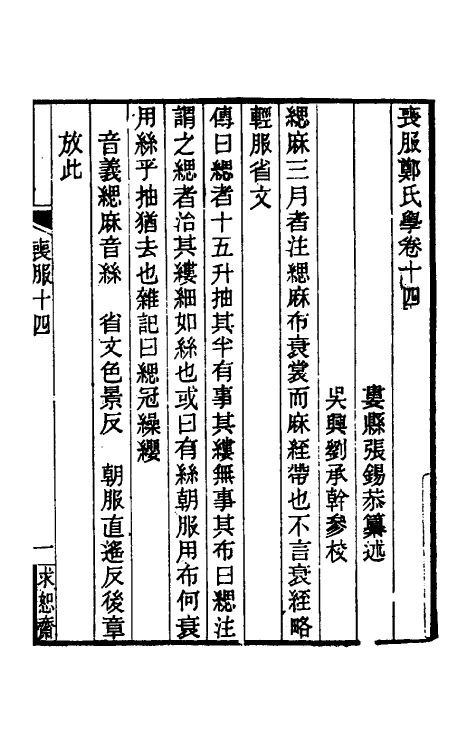 喪服鄭氏學卷十四
婁縣張錫恭纂述
吳興劉承幹參校
緦麻三月者注緦麻布衰裳而麻絰帶也不言衰絰略
輕服省文
傳曰緦者十五升抽其半有事其縷無事其布曰緦注
謂之緦者治其縷細如絲也或曰有絲朝服用布何衰
用絲乎抽猶去也雜記曰緦冠繰纓
音義緦麻音絲　省文色景反　朝服直遙反後章
放此
喪服十四
一
求恕齋